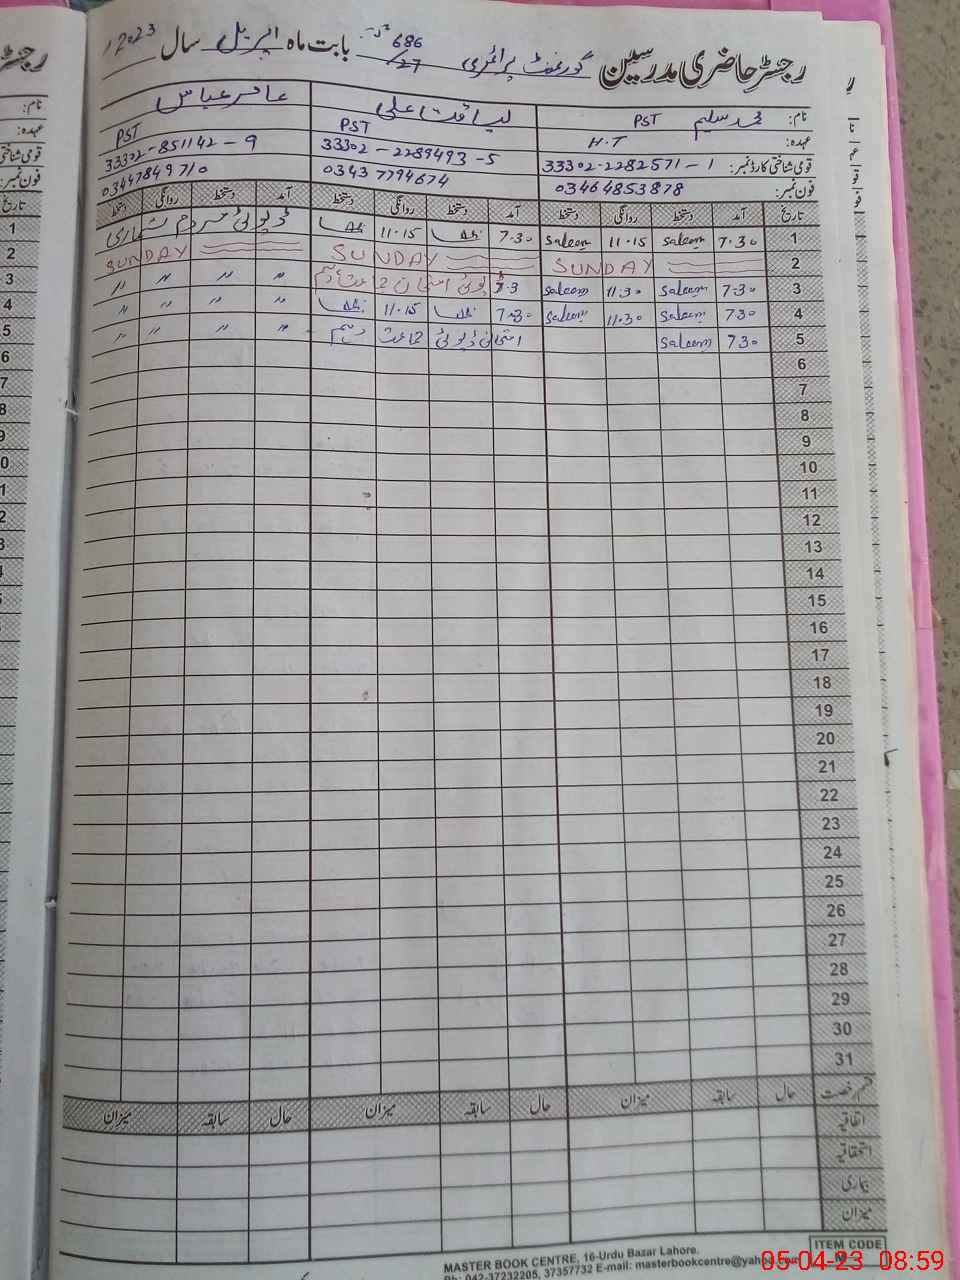 رجسٹر حاضری مدرسین گورنمنٹ پرائمری 686/27 بابت ماہ اپریل سال 2023
نام: محمد سلیم PST لیاقت علی عامر عباس
عہدہ: H.T PST PST
قومی شناختی کارڈ نمبر: 33302-2282571-1 33302-2289493-5 33302-851142-9
فون نمبر: 03464853878 03437794674 03447849710
تاریخ آمد دستخط روانگی دستخط آمد دستخط روانگی دستخط آمد دستخط روانگی دستخط
1 7.30 saleem 11.15 saleem 7.30 11.15 ڈیوٹی مردم شماری
2 SUNDAY SUNDAY SUNDAY
3 7.30 saleem 11.30 saleem 7.3 ڈیوٹی امتحان " " " "
4 7.30 saleem 11.30 saleem 7.30 11.15 " " " "
5 7.30 saleem امتحانی ڈیوٹی جماعت دہم " " " "
6
7
8
9
10
11
12
13
14
15
16
17
18
19
20
21
22
23
24
25
26
27
28
29
30
31
قسم رخصت حال سابقہ میزان حال سابقہ میزان حال سابقہ میزان
اتفاقیہ
استحقاقیہ
بیماری
میزان
ITEM CODE
MASTER BOOK CENTRE, 16-Urdu Bazar Lahore.
Ph: 042-37232205, 37357732 E-mail: masterbookcentre@yahoo.com
05-04-23 08:59